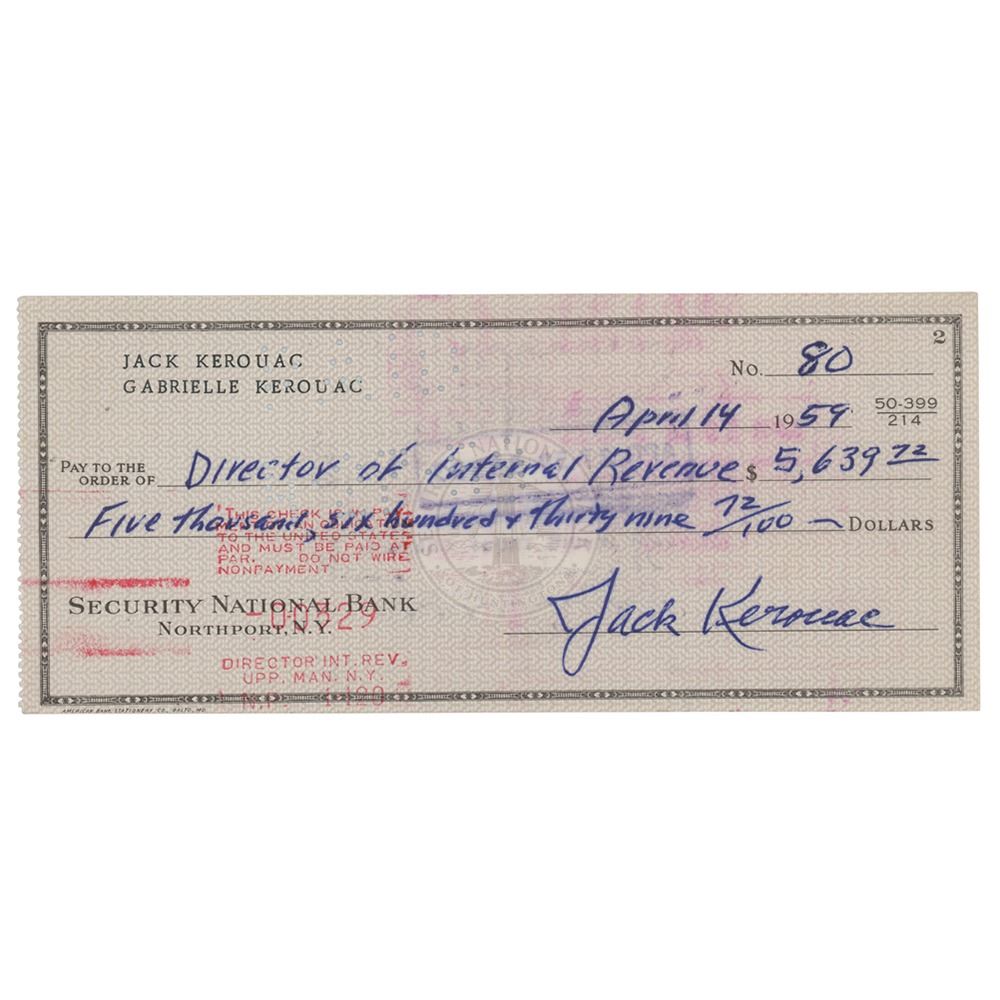 2
JACK KEROUAC
GABRIELLE KEROUAC
No. 80
April 14 1959
50-399
214
PAY TO THE ORDER OF Director of Internal Revenue $ 5,639 72
Five thousand, six hundred & thirty nine 72/100 — DOLLARS
THIS CHECK IS IN PAY-
MENT OF AN OBLIGATION
TO THE UNITED STATES
AND MUST BE PAID AT
PAR. DO NOT WIRE
NONPAYMENT
SECURITY NATIONAL BANK
NORTHPORT, N.Y.
Jack Kerouac
DIRECTOR INT. REV.
UPP. MAN. N.Y.
AMERICAN BANK STATIONERY CO., BALTO., MD.